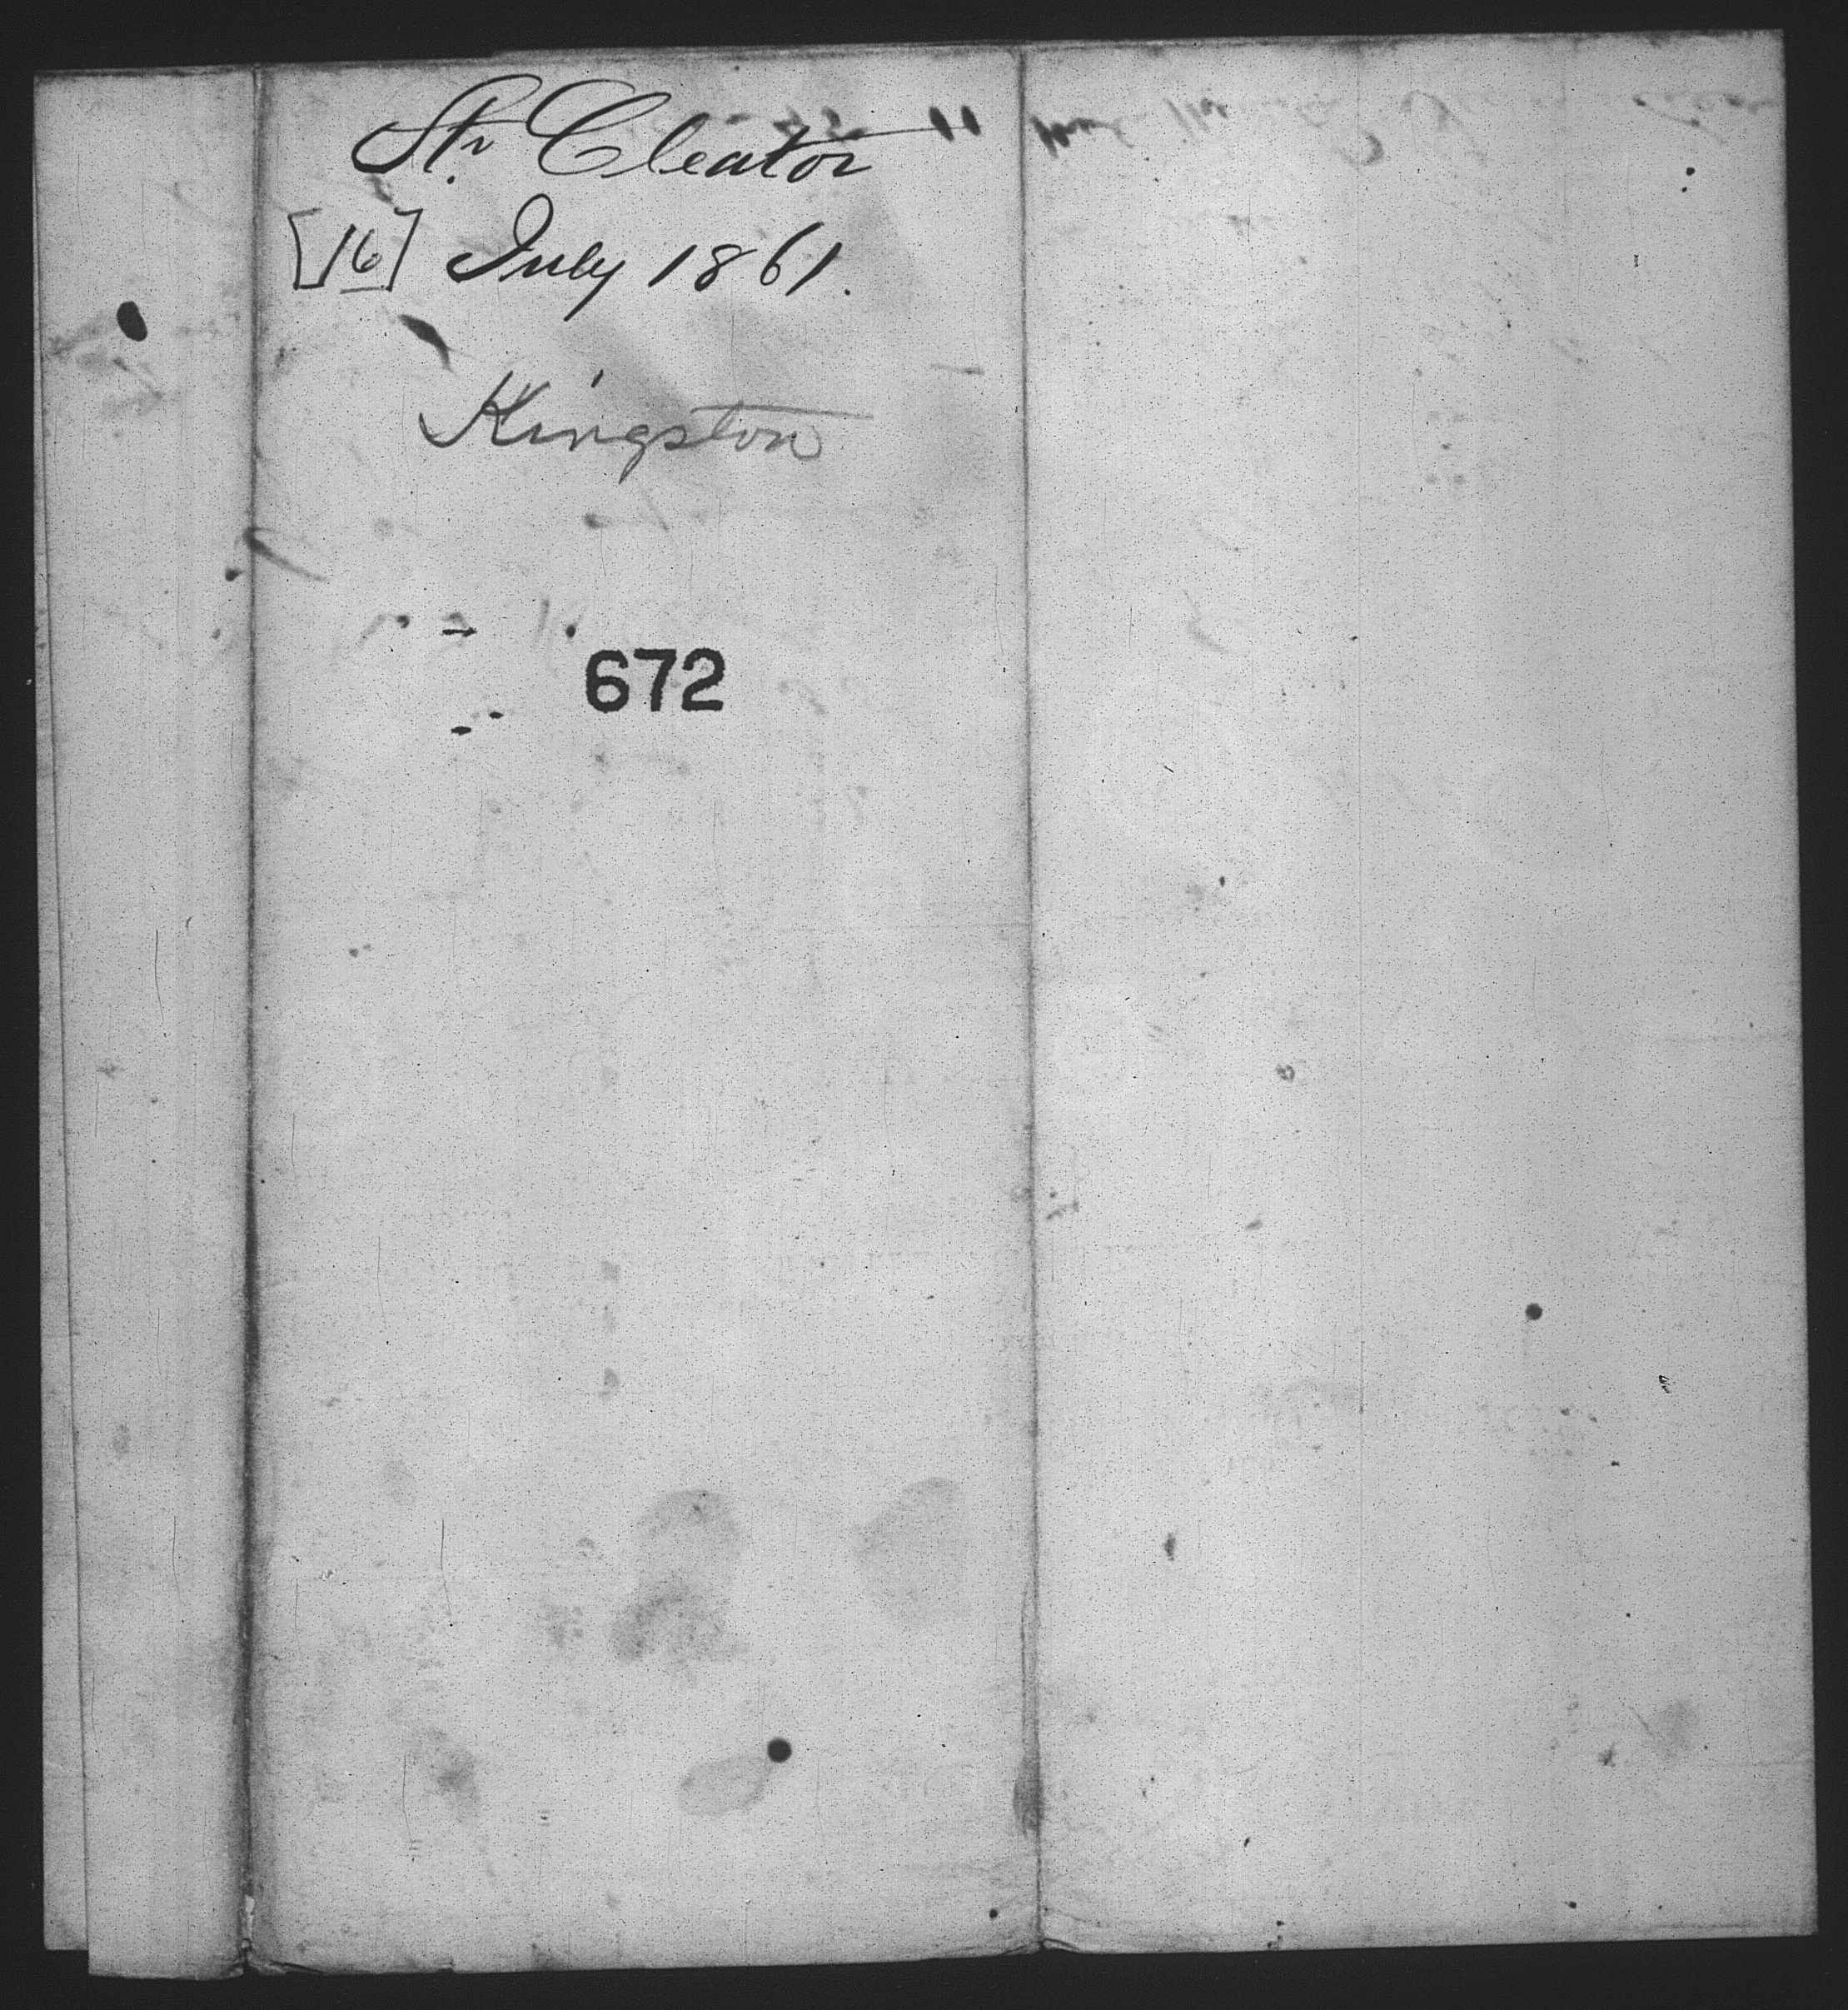 Str. Cleator
[16] July 1861.
Kingston
672